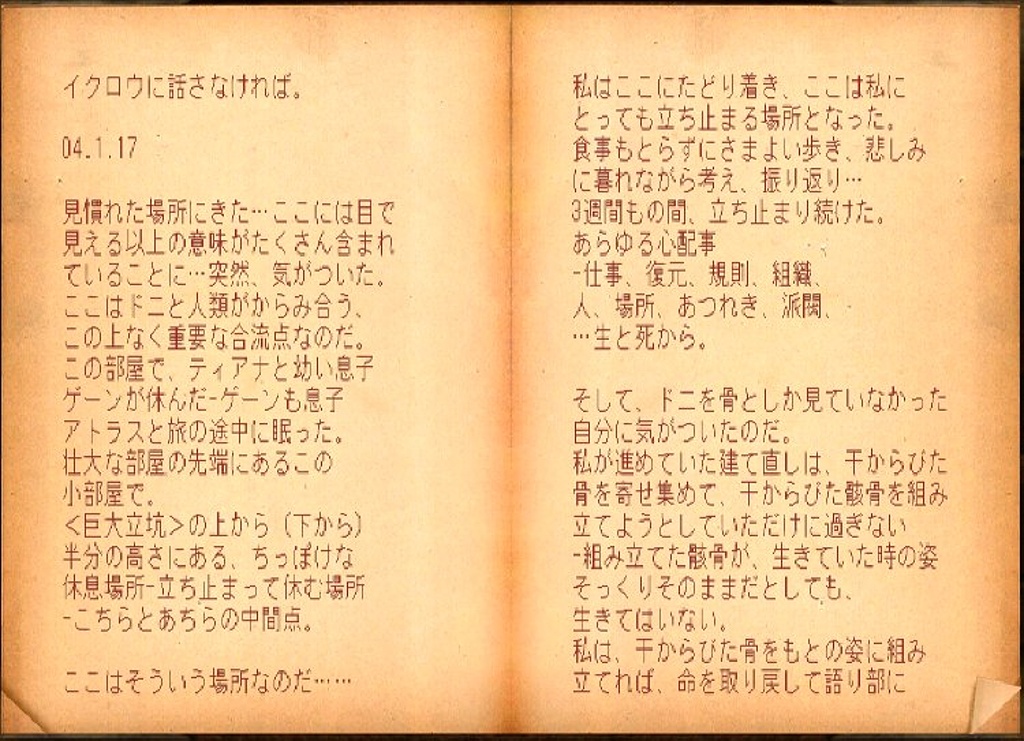 イクロウに話さなければ。
04.1.17
見慣れた場所にきた…ここには目で
見える以上の意味がたくさん含まれ
ていることに…突然、気がついた。
ここはドニと人類がからみ合う、
この上なく重要な合流点なのだ。
この部屋で、ティアナと幼い息子
ゲーンが休んだ-ゲーンも息子
アトラスと旅の途中に眠った。
壮大な部屋の先端にあるこの
小部屋で。
<巨大立坑>の上から（下から）
半分の高さにある、ちっぽけな
休息場所-立ち止まって休む場所
-こちらとあちらの中間点。
ここはそういう場所なのだ……
私はここにたどり着き、ここは私に
とっても立ち止まる場所となった。
食事もとらずにさまよい歩き、悲しみ
に暮れながら考え、振り返り…
3週間もの間、立ち止まり続けた。
あらゆる心配事
-仕事、復元、規則、組織、
人、場所、あつれき、派閥、
…生と死から。
そして、ドニを骨としか見ていなかった
自分に気がついたのだ。
私が進めていた建て直しは、干からびた
骨を寄せ集めて、干からびた骸骨を組み
立てようとしていただけに過ぎない
-組み立てた骸骨が、生きていた時の姿
そっくりそのままだとしても、
生きてはいない。
私は、干からびた骨をもとの姿に組み
立てれば、命を取り戻して語り部に